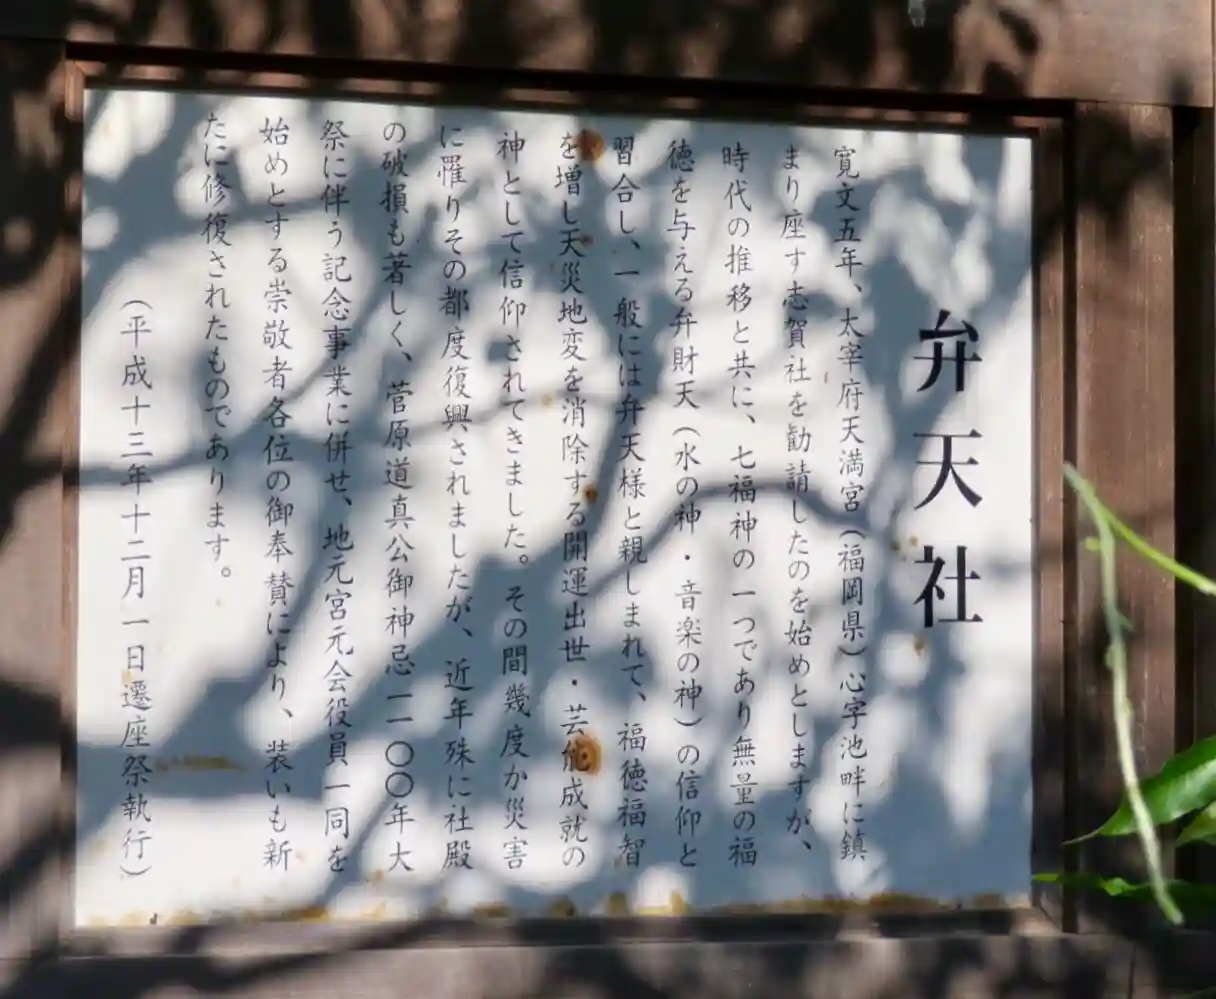 弁天社
寛文五年、太宰府天満宮（福岡県）心字池畔に鎮
まり座す志賀社を勧請したのを始めとしますが、
時代の推移と共に、七福神の一つであり無量の福
徳を与える弁財天（水の神・音楽の神）の信仰と
習合し、一般には弁天様と親しまれて、福徳福智
を増し天災地変を消除する開運出世・芸能成就の
神として信仰されてきました。その間幾度か災害
に罹りその都度復興されましたが、近年殊に社殿
の破損も著しく、菅原道真公御神忌一一〇〇年大
祭に伴う記念事業に併せ、地元宮元会役員一同を
始めとする崇敬者各位の御奉賛により、装いも新
たに修復されたものであります。
（平成十三年十二月一日遷座祭執行）